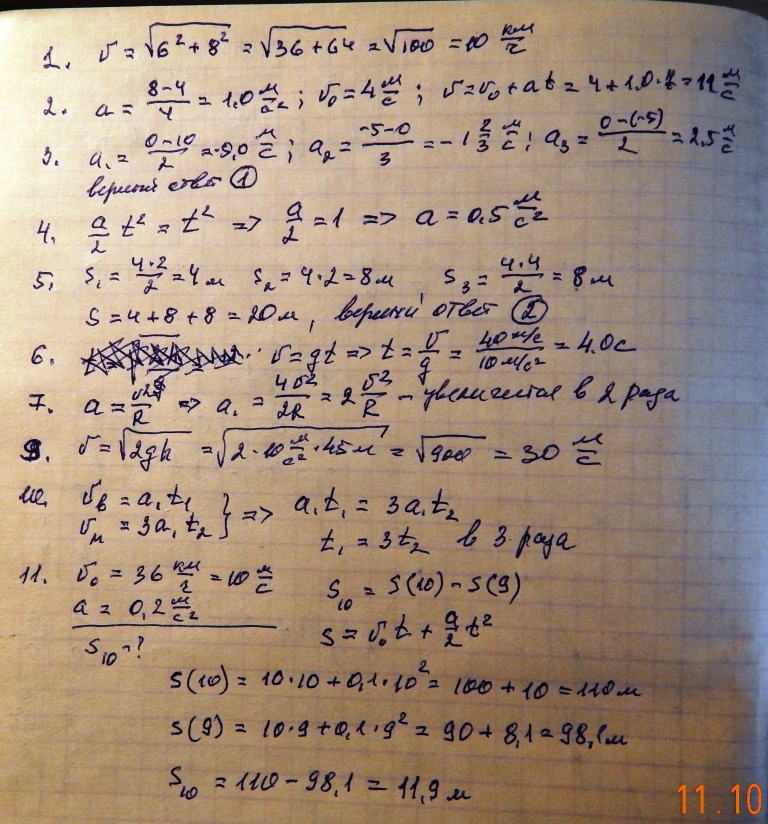 1. v = √(6² + 8²) = √(36 + 64) = √100 = 10 км/ч
2. a = (8-4)/4 = 1.0 м/с²; v₀ = 4 м/с; v = v₀ + at = 4 + 1.0·7 = 11 м/с
3. a₁ = (0-10)/2 = -5,0 м/с; a₂ = (-5-0)/3 = -1 2/3 м/с; a₃ = (0-(-5))/2 = 2.5 м/с
верный ответ ①
4. a/2 t² = t² => a/2 = 1 => a = 0.5 м/с²
5. s₁ = (4·2)/2 = 4 м s₂ = 4·2 = 8 м s₃ = (4·4)/2 = 8 м
s = 4 + 8 + 8 = 20 м, верный ответ ②
6. v = gt => t = v/g = (40 м/с)/(10 м/с²) = 4.0 с
7. a = v²/R => a₁ = 4v²/2R = 2 v²/R - увеличится в 2 раза
9. v = √(2gh) = √(2·10 м/с² · 45 м) = √900 = 30 м/с
10. vв = a₁t₁
vм = 3a₁t₂ } => a₁t₁ = 3a₁t₂
t₁ = 3t₂ в 3 раза
11. v₀ = 36 км/ч = 10 м/с
a = 0,2 м/с²
s₁₀ - ?
s₁₀ = s(10) - s(9)
s = v₀t + a/2 t²
s(10) = 10·10 + 0,1·10² = 100 + 10 = 110 м
s(9) = 10·9 + 0,1·9² = 90 + 8,1 = 98,1 м
s₁₀ = 110 - 98,1 = 11,9 м
11.10